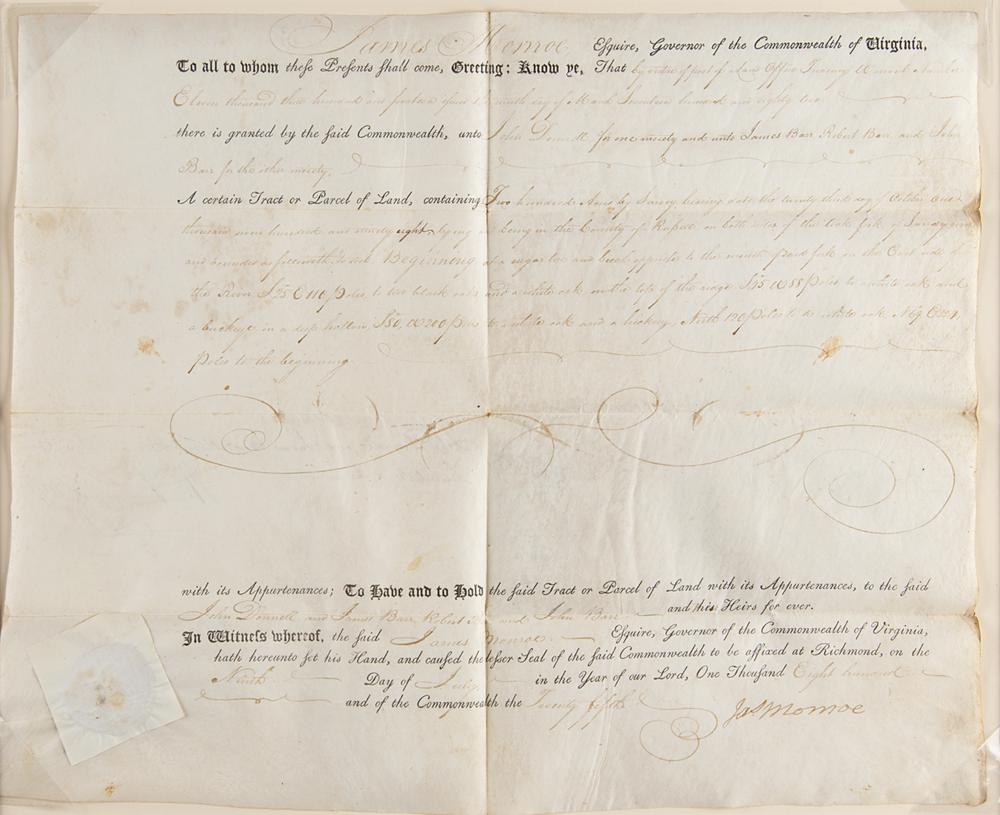 James Monroe Esquire, Governor of the Commonwealth of Virginia,
To all to whom these Presents shall come, Greeting: Know ye, That by virtue of part of a Land Office Treasury Warrant Number
Eleven thousand three hundred and issued the ninth day of March Seventeen hundred and eighty two
there is granted by the said Commonwealth, unto John Donnell for one moiety and unto James Barr Robert Barr and John
Barr for the other moiety,
A certain Tract or Parcel of Land, containing Two hundred Acres by Survey bearing date the twenty third day of October One
thousand seven hundred and ninety eight lying and being in the County of Russell on both sides of the fork of Sandy river
and bounded as followeth, to wit Beginning at a sugar tree and beech opposite to the mouth of said fork on the East side of
the River S 75 E 116 poles to two black oaks and a white oak on the top of the ridge W 88 poles to a white oak and
a buckeye in a deep hollow, S 50, W 200 poles to a white oak and a hickory, North 120 poles to a white oak N 69 E 224
poles to the beginning
with its Appurtenances; To Have and to Hold the said Tract or Parcel of Land with its Appurtenances, to the said
John Donnell and James Barr Robert Barr and John Barr and their Heirs for ever.
In Witness whereof, the said James Monroe Esquire, Governor of the Commonwealth of Virginia,
hath hereunto set his Hand, and caused the lesser Seal of the said Commonwealth to be affixed at Richmond, on the
Ninth Day of July in the Year of our Lord, One Thousand Eight hundred
and of the Commonwealth the Twenty fifth
Jas Monroe